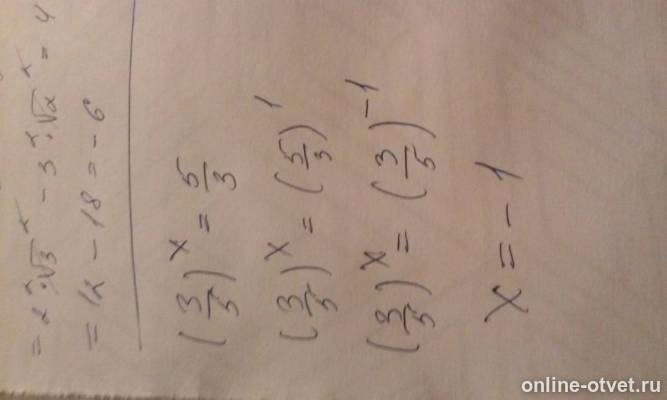 = 12 - 18 = -6
(3/5)^x = 5/3
(3/5)^x = (5/3)^1
(3/5)^x = (3/5)^-1
x = -1
online-otvet.ru